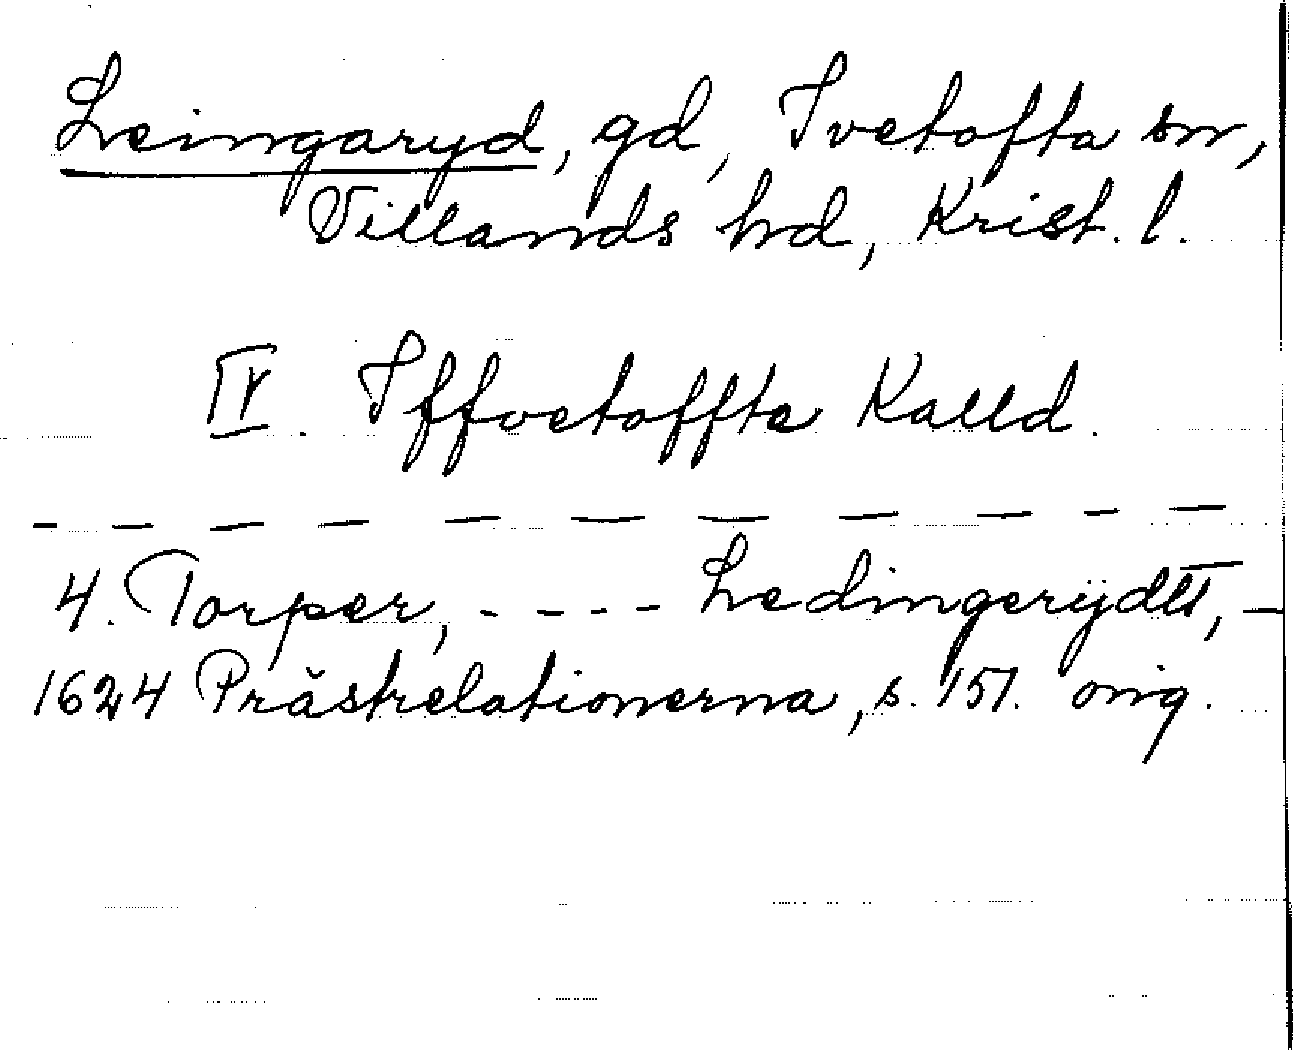 Leingaryd, gd, Ivetofta sn,
Villands hd, Krist. l.
IV. Iffvetoffta Kalld.
— — — — — — — — — — —
4. Torper, - - - - Ledingerÿdtt, —
1624 Prästrelationerna, s. 151. orig.